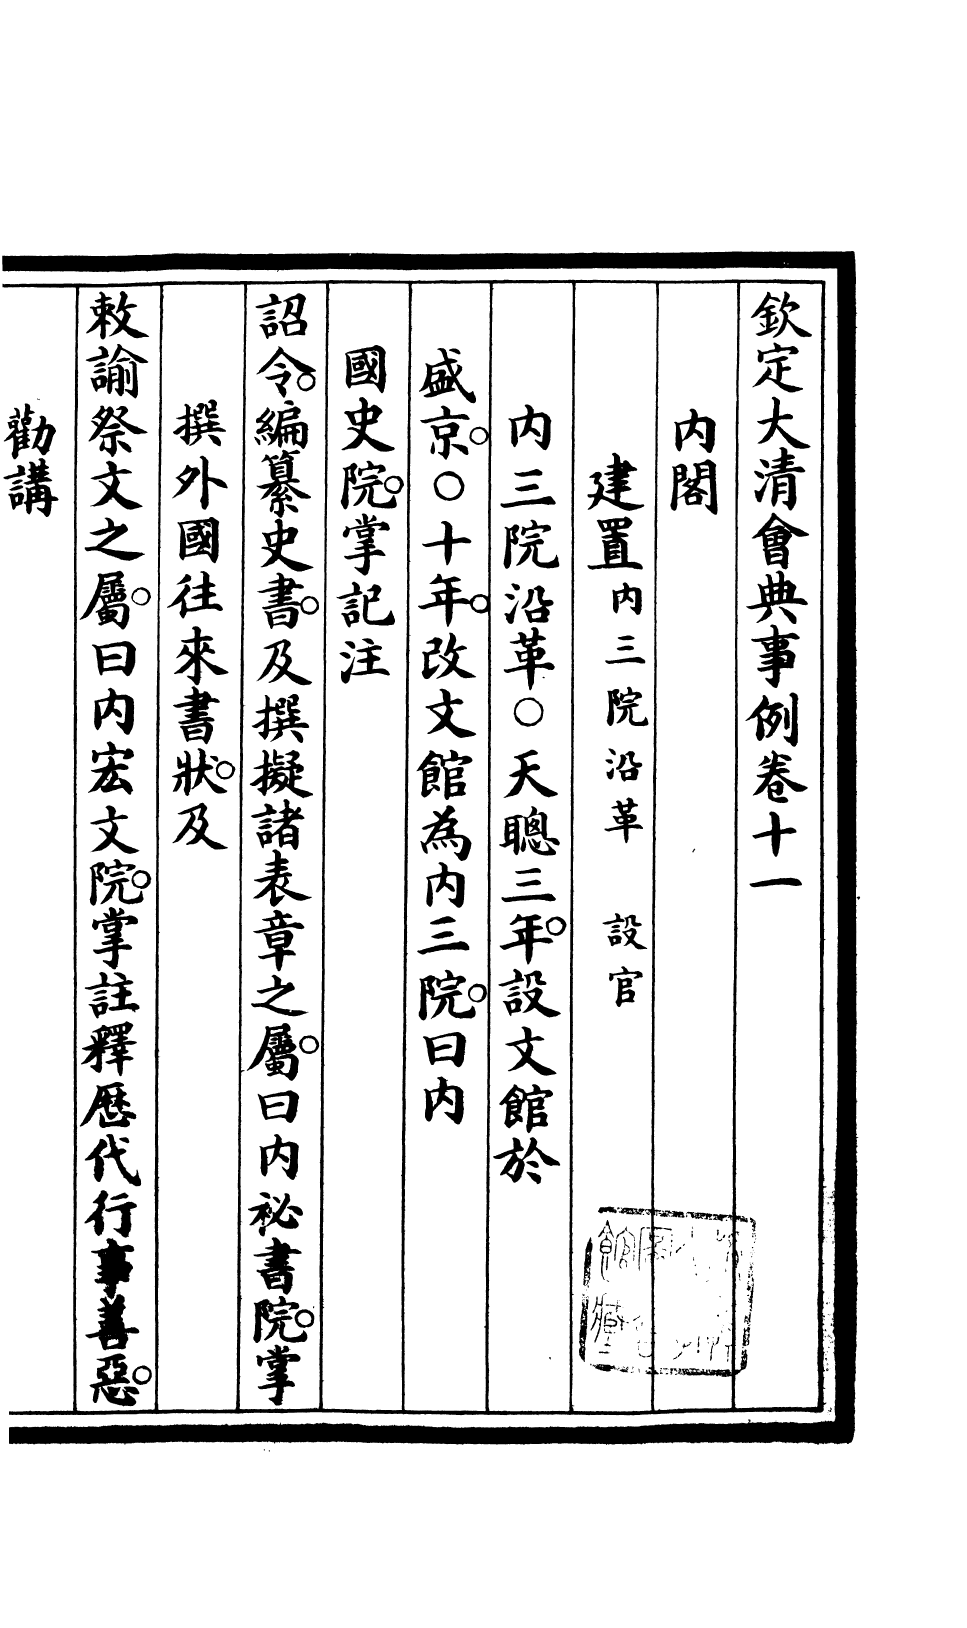 欽定大清會典事例卷十一
內閣
建置內三院沿革 設官
內三院沿革○天聰三年。設文館於
盛京。○十年。改文館為內三院。曰內
國史院。掌記注
詔令。編纂史書。及撰擬諸表章之屬。曰內祕書院。掌
撰外國往來書狀。及
敕諭祭文之屬。曰內宏文院。掌註釋歷代行事善惡。
勸講